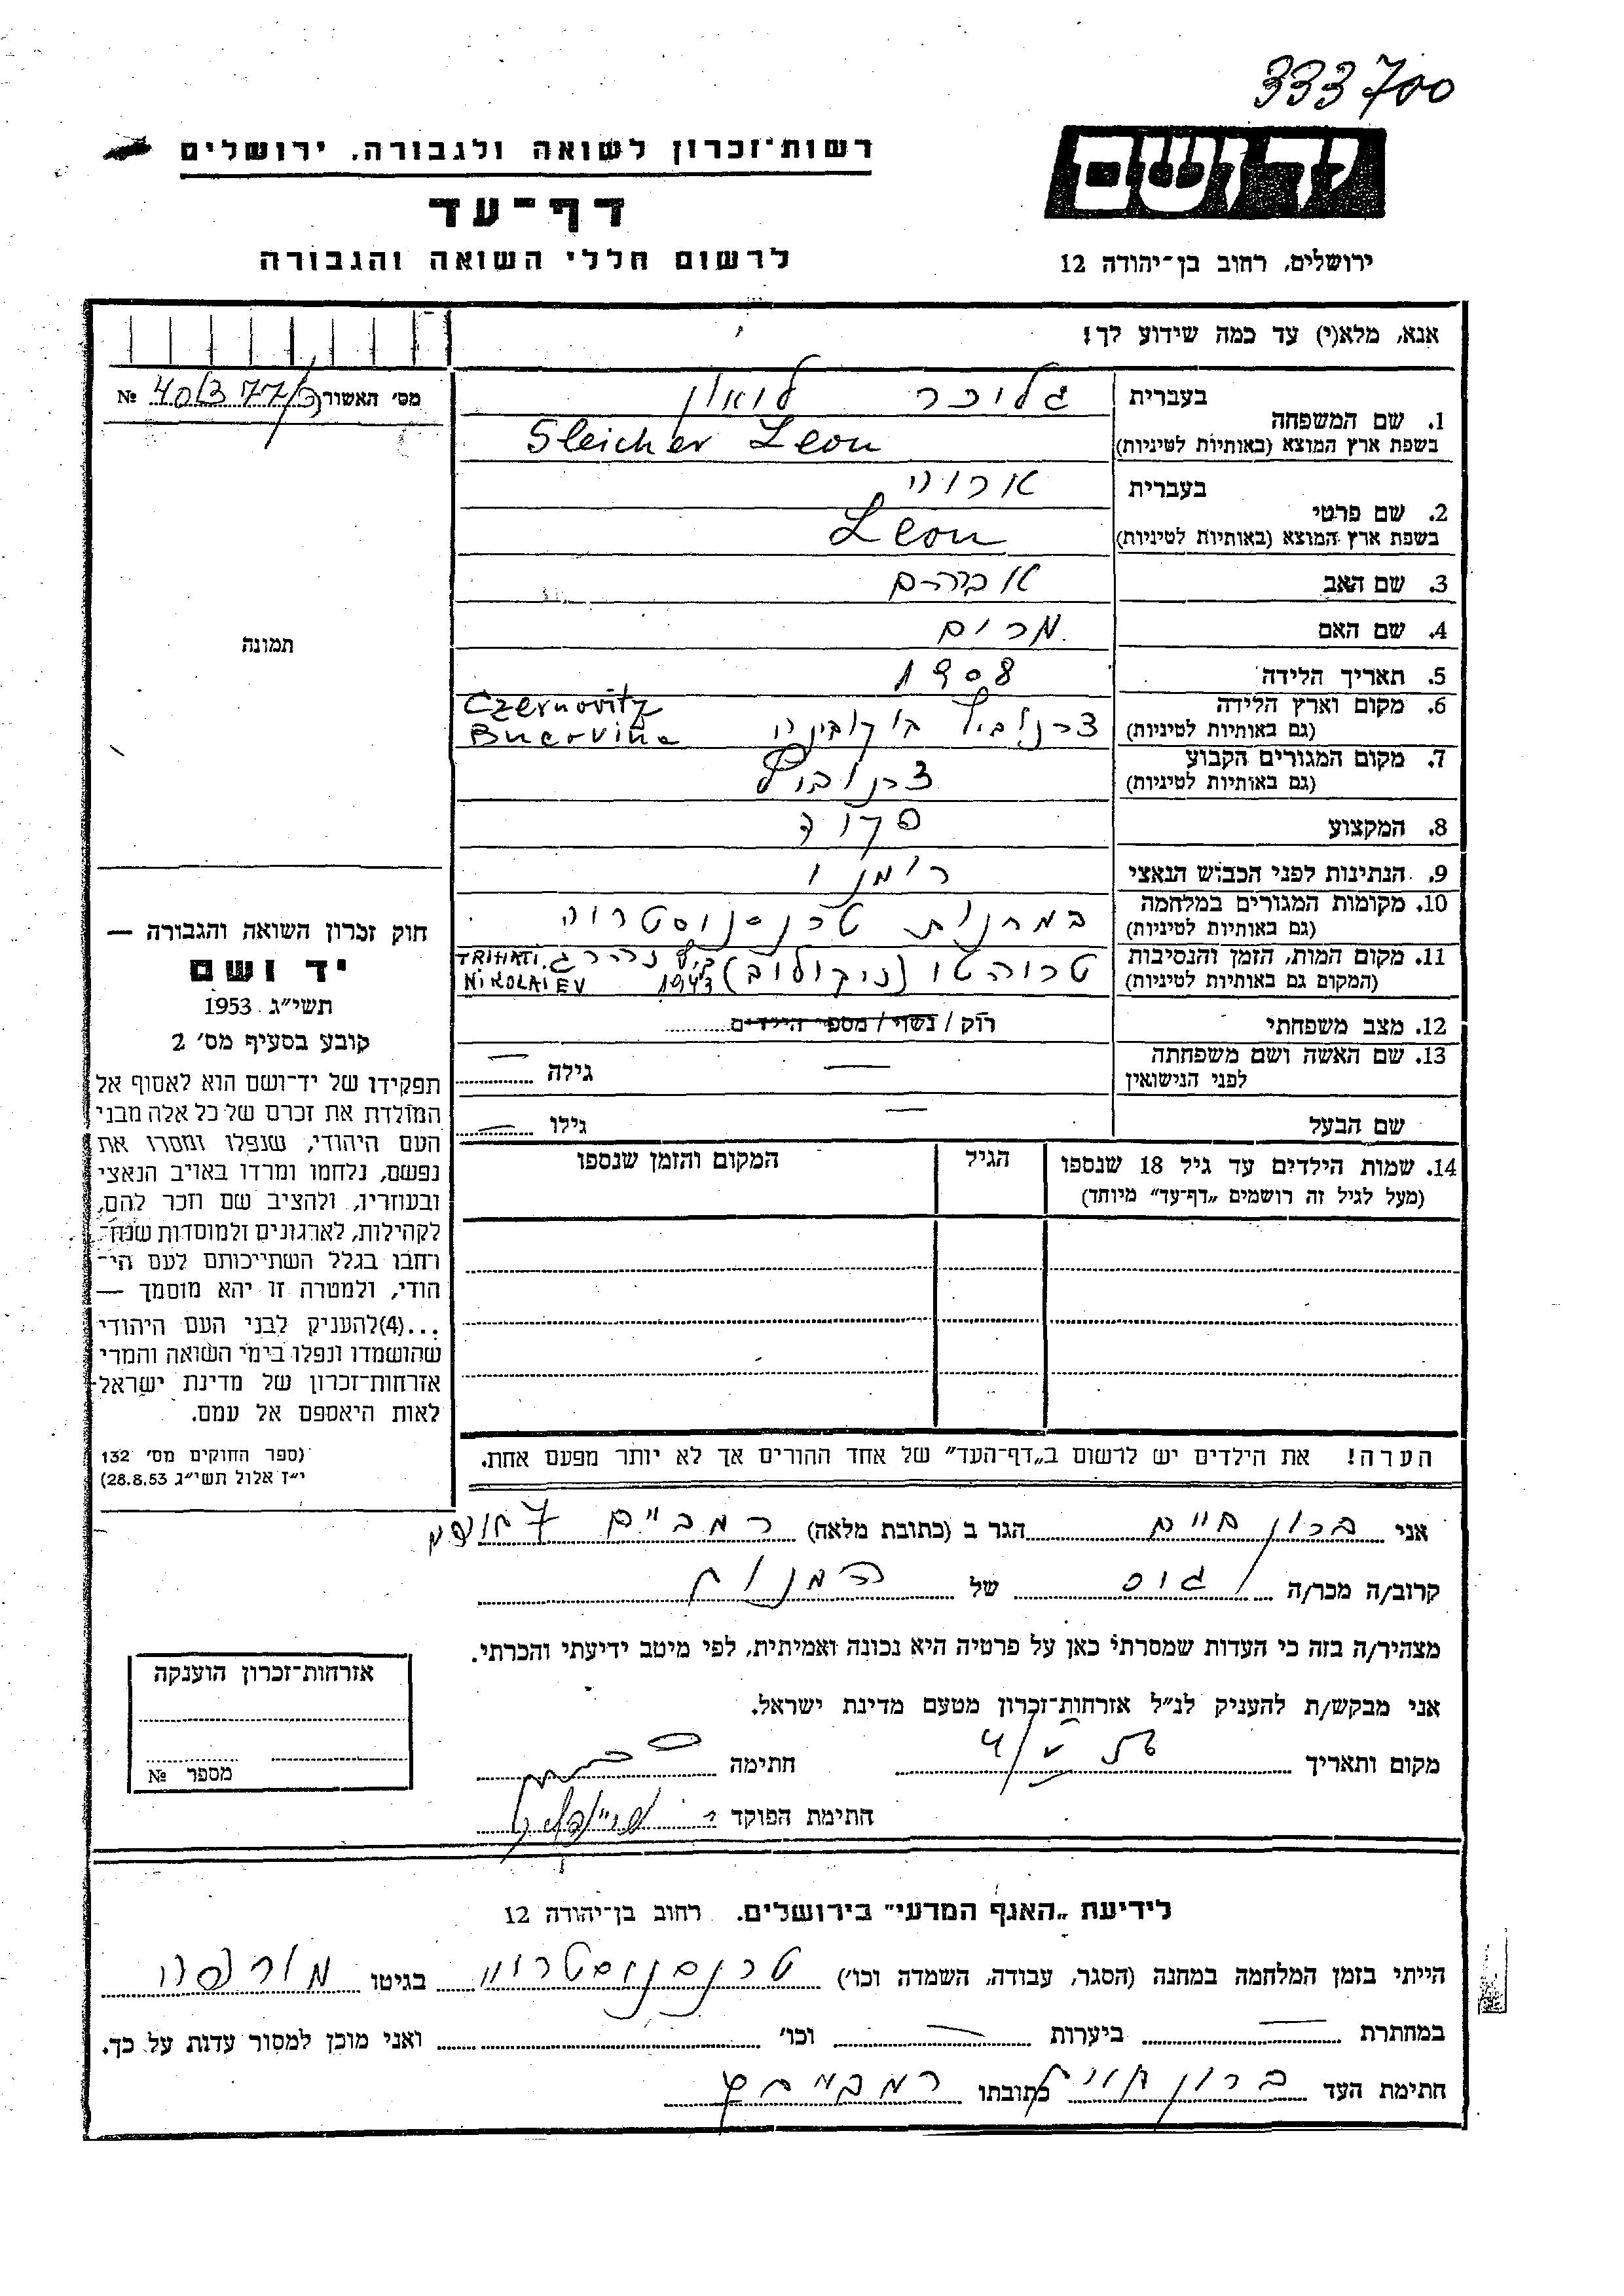 333700
רשות־זכרון לשואה ולגבורה, ירושלים
יד ושם
דף־עד
לרשום חללי השואה והגבורה
ירושלים, רחוב בן־יהודה 12
אנא, מלא(י) עד כמה שידוע לך!
מס' האשור № 40/377/3
1. שם המשפחה
בעברית גליכר ליאון
בשפת ארץ המוצא (באותיות לטיניות) Gleicher Leon
2. שם פרטי
בעברית אריה
בשפת ארץ המוצא (באותיות לטיניות) Leon
3. שם האב אברהם
4. שם האם מרים
5. תאריך הלידה 1908
6. מקום וארץ הלידה צרנוביץ בוקובינה Czernovitz
(גם באותיות לטיניות) Bucovina
7. מקום המגורים הקבוע צרנוביץ
(גם באותיות לטיניות)
8. המקצוע פקיד
9. הנתינות לפני הכבוש הנאצי רומני
10. מקומות המגורים במלחמה במחנות טרנסניסטריה
(גם באותיות לטיניות)
11. מקום המות, הזמן והנסיבות טריהטי (ניקולייב) 1943 נהרג TRIHATI,
(המקום גם באותיות לטיניות) NIKOLAIEV
12. מצב משפחתי רוק / נשוי / מספר הילדים
13. שם האשה ושם משפחתה גילה
לפני הנישואין
שם הבעל גילו
14. שמות הילדים עד גיל 18 שנספו הגיל המקום והזמן שנספו
(מעל לגיל זה רושמים „דף־עד" מיוחד)
הערה! את הילדים יש לרשום ב„דף־העד" של אחד ההורים אך לא יותר מפעם אחת.
תמונה
חוק זכרון השואה והגבורה —
יד ושם
תשי"ג 1953
קובע בסעיף מס' 2
תפקידו של יד־ושם הוא לאסוף אל
המולדת את זכרם של כל אלה מבני
העם היהודי, שנפלו ומסרו את
נפשם, נלחמו ומרדו באויב הנאצי
ובעוזריו, ולהציב שם וזכר להם,
לקהילות, לארגונים ולמוסדות שנח־
רחבו בגלל השתייכותם לעם הי־
הודי, ולמטרה זו יהא מוסמך —
...(4)להעניק לבני העם היהודי
שהושמדו ונפלו בימי השואה והמרי
אזרחות־זכרון של מדינת ישראל
לאות היאספם אל עמם.
(ספר החוקים מס' 132
י"ז אלול תשי"ג 28.8.53)
אני ברון חיים הגר ב (כתובת מלאה) רמב"ם 7
קרוב/ה מכר/ה גיס של המנוח
מצהיר/ה בזה כי העדות שמסרתי כאן על פרטיה היא נכונה ואמיתית, לפי מיטב ידיעתי והכרתי.
אני מבקש/ת להעניק לנ"ל אזרחות־זכרון מטעם מדינת ישראל.
מקום ותאריך חתימה
חתימת הפוקד
אזרחות־זכרון הוענקה
מספר №
לידיעת „האגף המדעי" בירושלים. רחוב בן־יהודה 12
הייתי בזמן המלחמה במחנה (הסגר, עבודה, השמדה וכו') טרנסניסטריה בגיטו מורפה
במחתרת ביערות וכו' ואני מוכן למסור עדות על כך.
חתימת העד ברון חיים כתובתו רמב"ם 7